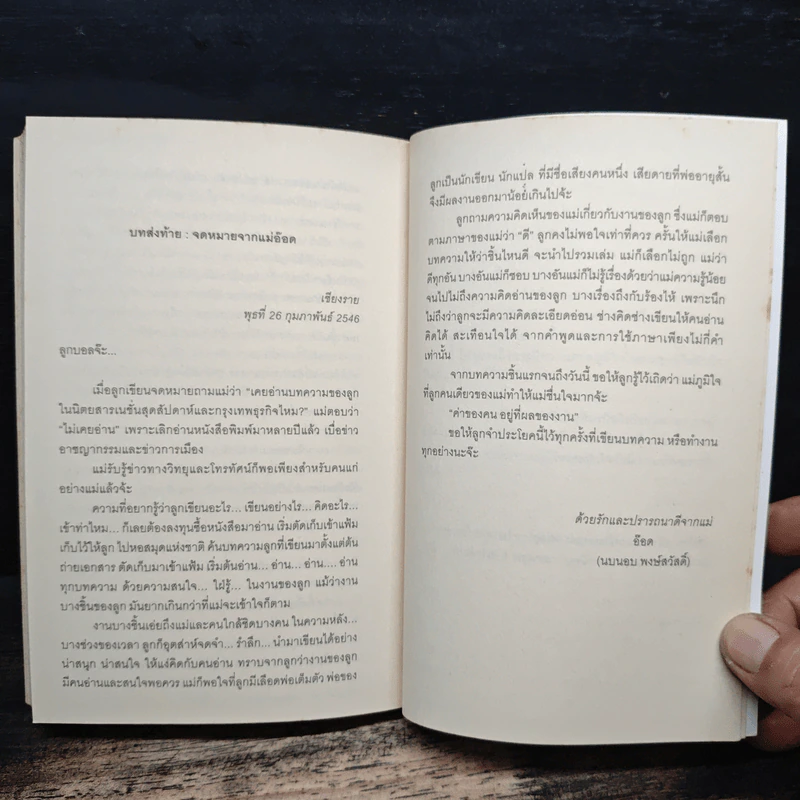 บทส่งท้าย : จดหมายจากแม่อ๊อด
เชียงราย
พุธที่ 26 กุมภาพันธ์ 2546
ลูกบอลจ๊ะ...
เมื่อลูกเขียนจดหมายถามแม่ว่า “เคยอ่านบทความของลูก
ในนิตยสารเนชั่นสุดสัปดาห์และกรุงเทพธุรกิจไหม?” แม่ตอบว่า
“ไม่เคยอ่าน” เพราะเลิกอ่านหนังสือพิมพ์มาหลายปีแล้ว เบื่อข่าว
อาชญากรรมและข่าวการเมือง
แม่รับรู้ข่าวทางวิทยุและโทรทัศน์ก็พอเพียงสำหรับคนแก่
อย่างแม่แล้วจ้ะ
ความที่อยากรู้ว่าลูกเขียนอะไร... เขียนอย่างไร... คิดอะไร...
เข้าท่าไหม... ก็เลยต้องลงทุนซื้อหนังสือมาอ่าน เริ่มตัดเก็บเข้าแฟ้ม
เก็บไว้ให้ลูก ไปหอสมุดแห่งชาติ ค้นบทความลูกที่เขียนมาตั้งแต่ต้น
ถ่ายเอกสาร ตัดเก็บมาเข้าแฟ้ม เริ่มต้นอ่าน... อ่าน... อ่าน.... อ่าน
ทุกบทความ ด้วยความสนใจ... ใฝ่รู้... ในงานของลูก แม้ว่างาน
บางชิ้นของลูก มันยากเกินกว่าที่แม่จะเข้าใจก็ตาม
งานบางชิ้นเอ่ยถึงแม่และคนใกล้ชิดบางคน ในความหลัง...
บางช่วงของเวลา ลูกก็อุตส่าห์จดจำ... รำลึก... นำมาเขียนได้อย่าง
น่าสนุก น่าสนใจ ให้แง่คิดกับคนอ่าน ทราบจากลูกว่างานของลูก
มีคนอ่านและสนใจพอควร แม่ก็พอใจที่ลูกมีเลือดพ่อเต็มตัว พ่อของ
ลูกเป็นนักเขียน นักแปล ที่มีชื่อเสียงคนหนึ่ง เสียดายที่พ่ออายุสั้น
จึงมีผลงานออกมาน้อยเกินไปจ้ะ
ลูกถามความคิดเห็นของแม่เกี่ยวกับงานของลูก ซึ่งแม่ก็ตอบ
ตามภาษาของแม่ว่า “ดี” ลูกคงไม่พอใจเท่าที่ควร ครั้นให้แม่เลือก
บทความให้ว่าชิ้นไหนดี จะนำไปรวมเล่ม แม่ก็เลือกไม่ถูก แม่ว่า
ดีทุกอัน บางอันแม่ก็ชอบ บางอันแม่ก็ไม่รู้เรื่องด้วยว่าแม่ความรู้น้อย
จนไปไม่ถึงความคิดอ่านของลูก บางเรื่องถึงกับร้องไห้ เพราะนึก
ไม่ถึงว่าลูกจะมีความคิดละเอียดอ่อน ช่างคิดช่างเขียนให้คนอ่าน
คิดได้ สะเทือนใจได้ จากคำพูดและการใช้ภาษาเพียงไม่กี่คำ
เท่านั้น
จากบทความชิ้นแรกจนถึงวันนี้ ขอให้ลูกรู้ไว้เถิดว่า แม่ภูมิใจ
ที่ลูกคนเดียวของแม่ทำให้แม่ชื่นใจมากจ้ะ
“ค่าของคน อยู่ที่ผลของงาน”
ขอให้ลูกจำประโยคนี้ไว้ทุกครั้งที่เขียนบทความ หรือทำงาน
ทุกอย่างนะจ๊ะ
ด้วยรักและปรารถนาดีจากแม่
อ๊อด
(นบนอบ พงษ์สวัสดิ์)